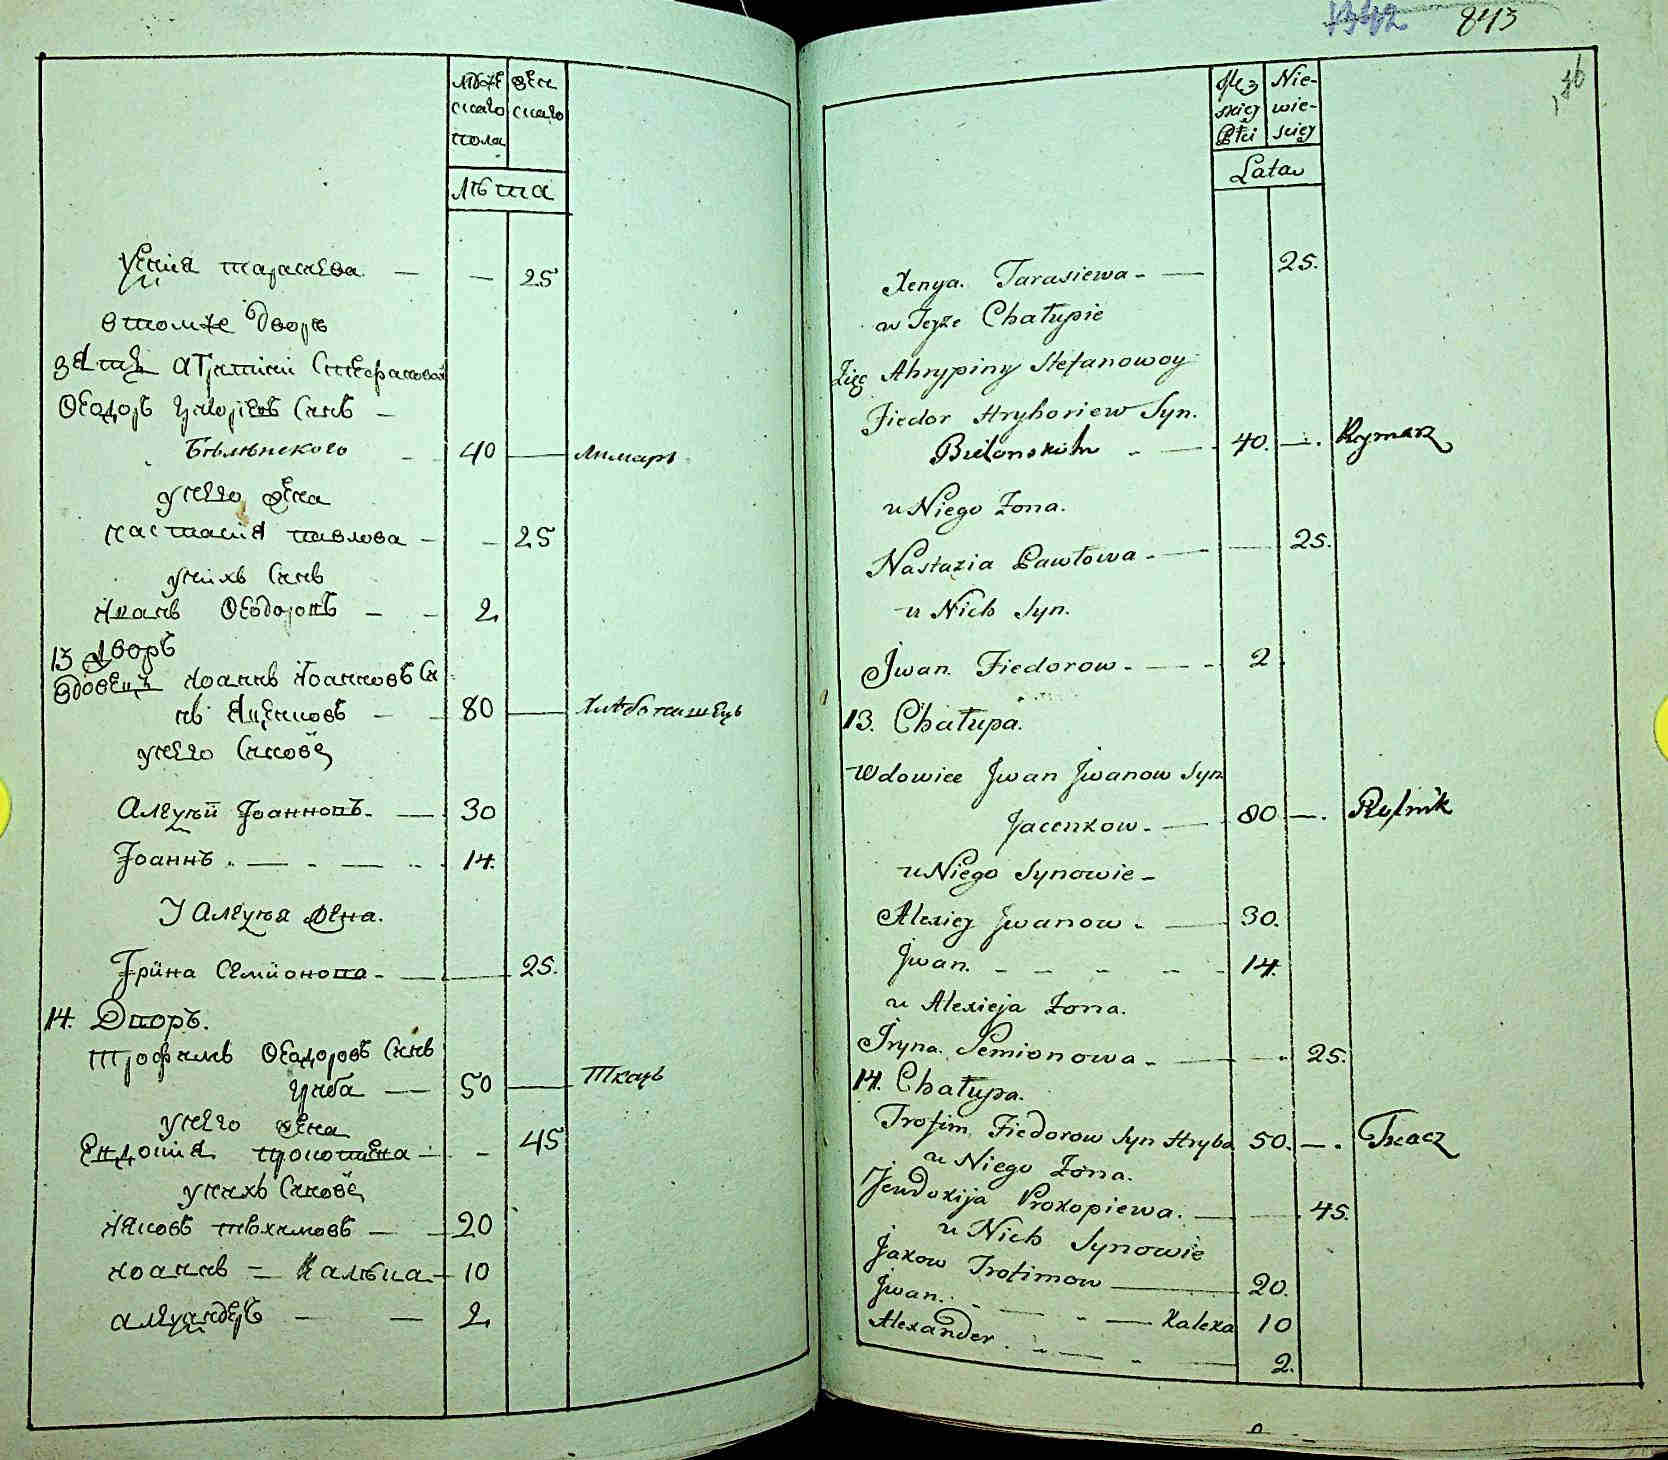 1342 843
муже
скаго
пола
жен
скаго
лѣта
Ксенія тарасіева — — 25
втомже дворѣ
зять агрипіни Стефановой
Ѳеодоръ григоріевъ Синъ —
Бѣлѣнского — 40 — Лимарь
унего жена
настасия павлова — — 25
унихъ Синъ
Иванъ Ѳеодоровъ — — 2
13 дворъ
вдовецъ Иоаннъ Иоанновъ Си
нъ Яценковъ — 80 — Хлѣбопашецъ
унего Синовѣ
Алеѯѣй Іоанновъ. — 30
Іоаннъ . — . — . 14.
У Алеѯѣя Жена.
Ірина Семионова — — 25.
14. Дворъ.
трофимъ Ѳеодоровъ Синъ
гриба — 50 — Ткачь
унего жена
Евдокия прокопиева — - 45
унихъ Синовѣ
Яковъ трохимовъ — 20
Иоаннъ = Калѣка — 10
алеѯандеръ — — 2
Męz
skiey
Płci
Nie-
wie-
sciey
Lata
Xenya. Tarasiewa - — 25.
w Teyże Chałupie
Zięć Ahrypiny Stefanowoy
Fiedor Hryhoriew Syn.
Bielonskoho - — 40. —. Rymarz
u Niego Żona.
Nastazia Pawłowa - — — 25.
u Nich Syn.
Jwan Fiedorow - — - 2
13. Chałupa.
Wdowiec Jwan Jwanow Syn
Jacenkow. — 80 —. Rolnik
u Niego Synowie -
Alexiey Jwanow . — 30.
Jwan. - - - - - 14.
u Alexieja Żona.
Jryna Semionowa - — - 25.
14. Chałupa.
Trofim Fiedorow Syn Hryba 50. —. Tkacz
u Niego Żona.
Jewdokija Prokopiewa. — — 45.
u Nich Synowie
Jakow Trofimow — 20.
Jwan. - — - — Kaleka 10
Alexander . - — - — 2.